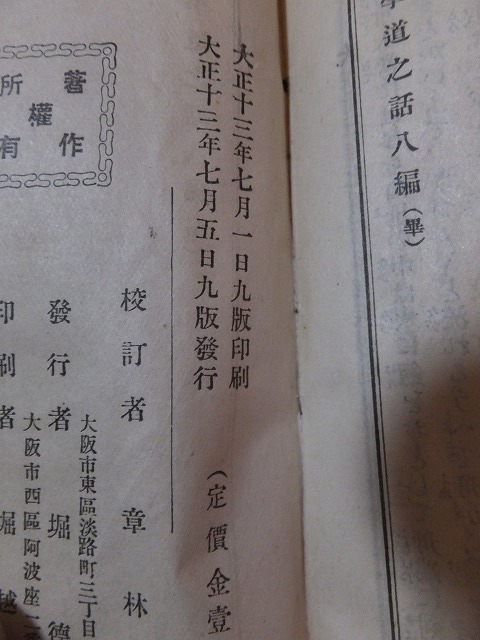 道之話八編(畢)
大正十三年七月一日九版印刷
大正十三年七月五日九版發行
(定價金壹
校訂者章林
大阪市東區淡路町三丁目
發行者堀德
大阪市西區阿波座二
印刷者堀越
著作
權
所有